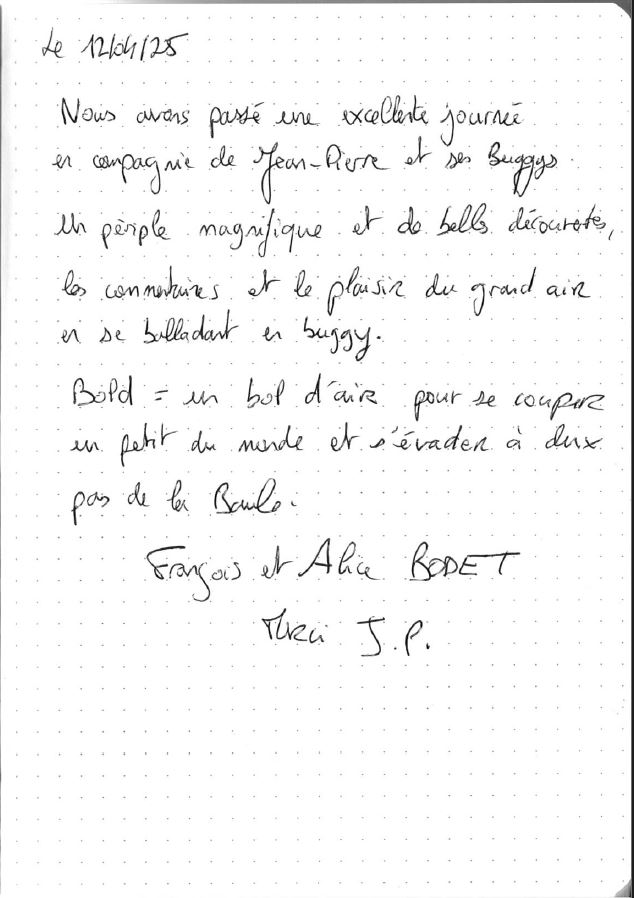 Le 12/04/25
Nous avons passé une excellente journée
en compagnie de Jean-Pierre et ses Buggys.
Un périple magnifique et de belles découvertes,
les commentaires et le plaisir du grand air
en se balladant en buggy.
Bold = un bol d'air pour se couper
un petit du monde et s'évader à deux
pas de la Baule.
François et Alice BODET
Merci J.P.